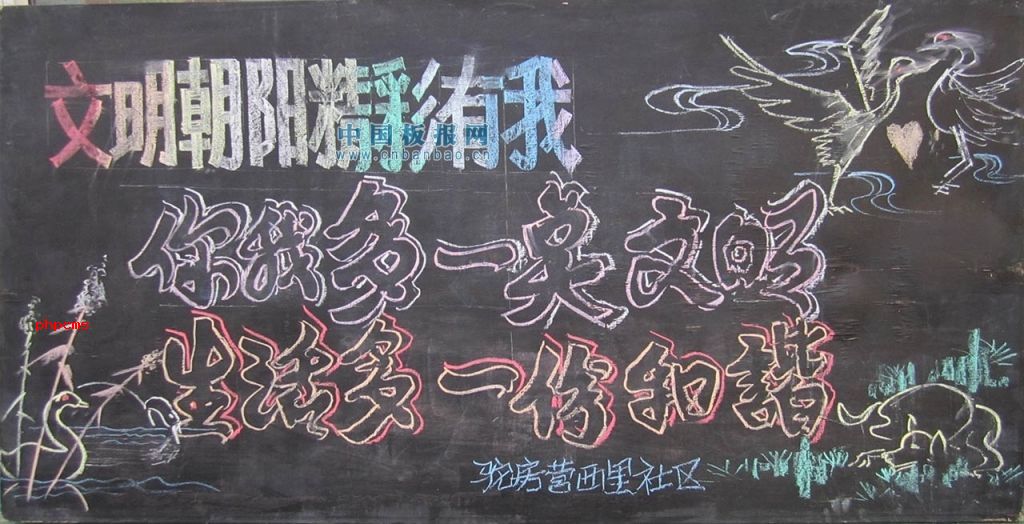 文明朝阳精彩有我
中国板报网
www.cnbanbao.cn
你我多一奌文明
phpcms
生活多一份和諧
驼房营西里社区